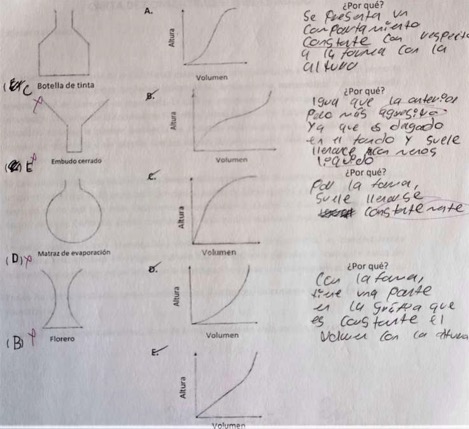 A.
Altura
Volumen
¿Por qué?
Se Presenta un
Comportamiento
Constante Con respecto
a la forma con la
altura
( C
Botella de tinta
B.
Altura
Volumen
¿Por qué?
Igual que la anterior
Pero más agresivo
Ya que es delgado
en el fondo y suele
llenarse con menos
líquido
( E
Embudo cerrado
C.
Altura
Volumen
¿Por qué?
Por la forma,
Suele llenarse
constantemente
(D)
Matraz de evaporación
D.
Altura
Volumen
¿Por qué?
Con la forma,
tiene una parte
en la gráfica que
es constante el
Volumen con la altura
(B)
Florero
E.
Altura
Volumen